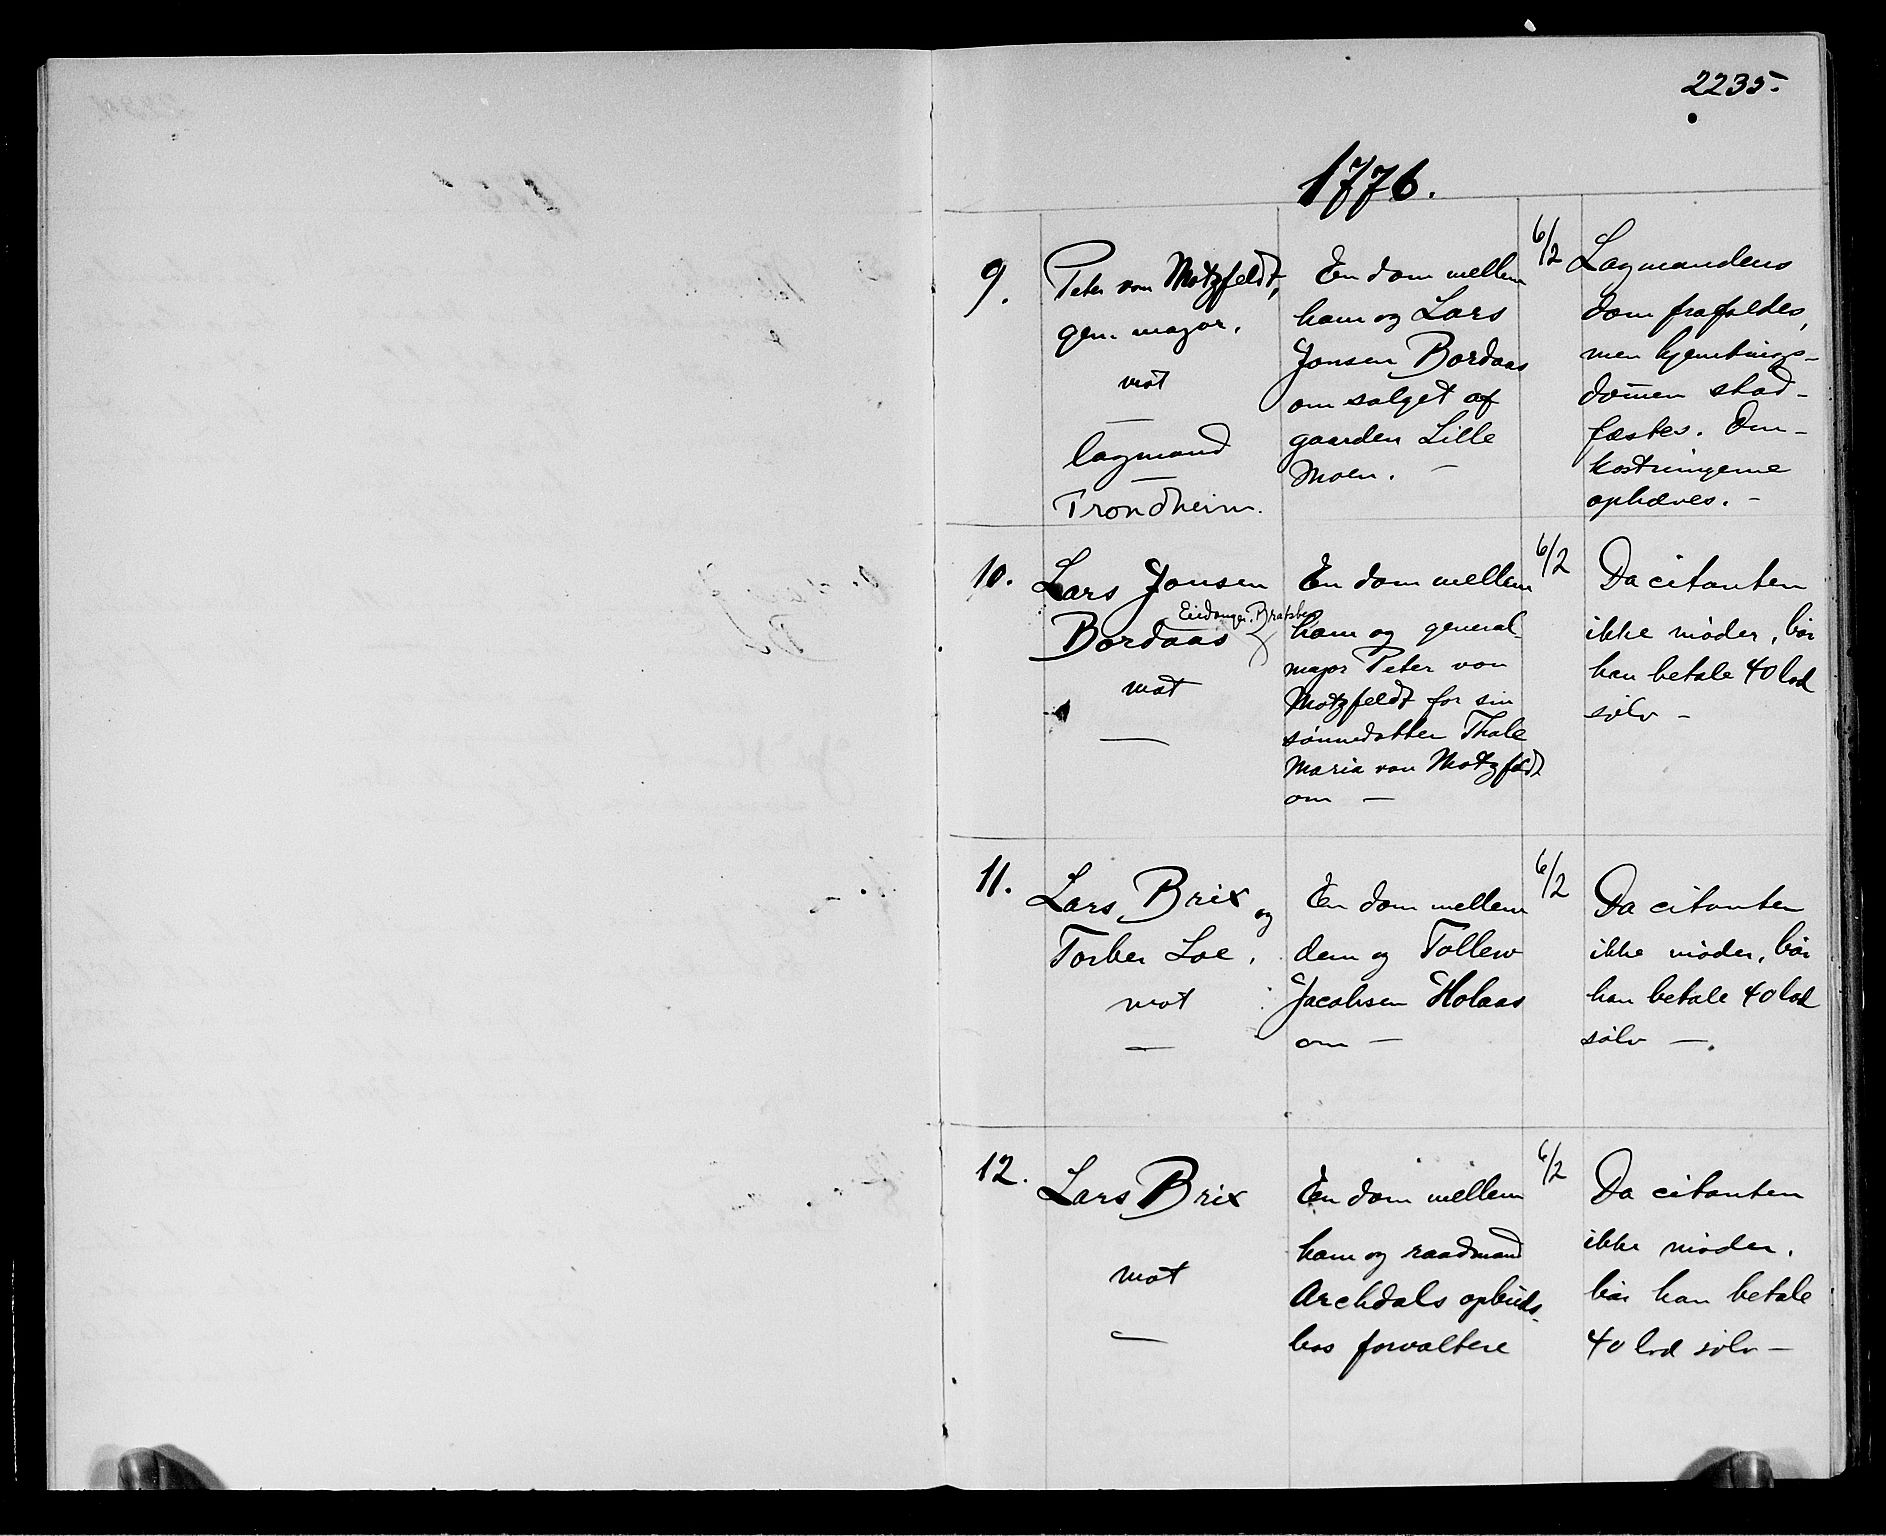 2235.
1776.
9.
Peter von Motzfeldt,
gen. major.
mot
—
lagmand
—
Trondheim.
En dom mellem
ham og Lars
Jonsen Bordaas
om salget af
gaarden Lille
Moen. —
6/2
Lagmandens
dom frafaldes,
men hjemtings-
dommen stad-
fæstes. Om-
kostningerne
ophæves. —
10.
Lars Jonsen
Eidanger. Bratsberg
Bordaas
mot
—
En dom mellem
ham og general-
major Peter von
Motzfeldt for sin
sønnedatter Thale
Maria von Motzfeldt
om —
6/2
Da citanten
ikke møder, bør
han betale 40 lod
sølv —
11.
Lars Brix og
Torber Loe.
mot
—
En dom mellem
dem og Tollew
Jacobsen Holaas
om —
6/2
Da citanten
ikke møder, bør
han betale 40 lod
sølv —.
12.
Lars Brix
mot
—
En dom mellem
ham og raadmand
Archdals opbuds-
bos forvaltere
6/2
Da citanten
ikke møder.
bør han betale
40 lod sølv —